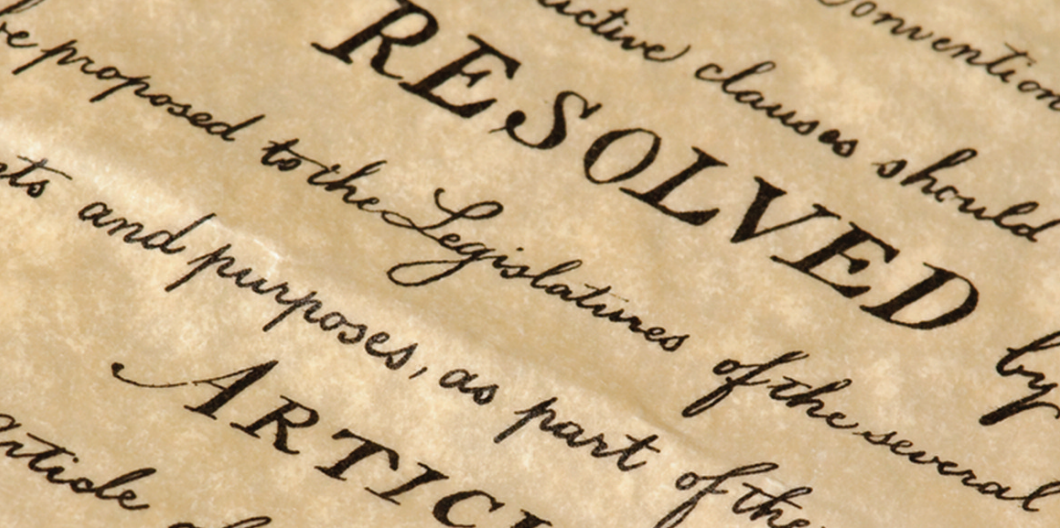 Convention
uctive clauses should
RESOLVED by
be proposed to the Legislatures of the several
ts and purposes, as part of the
ARTICL
article